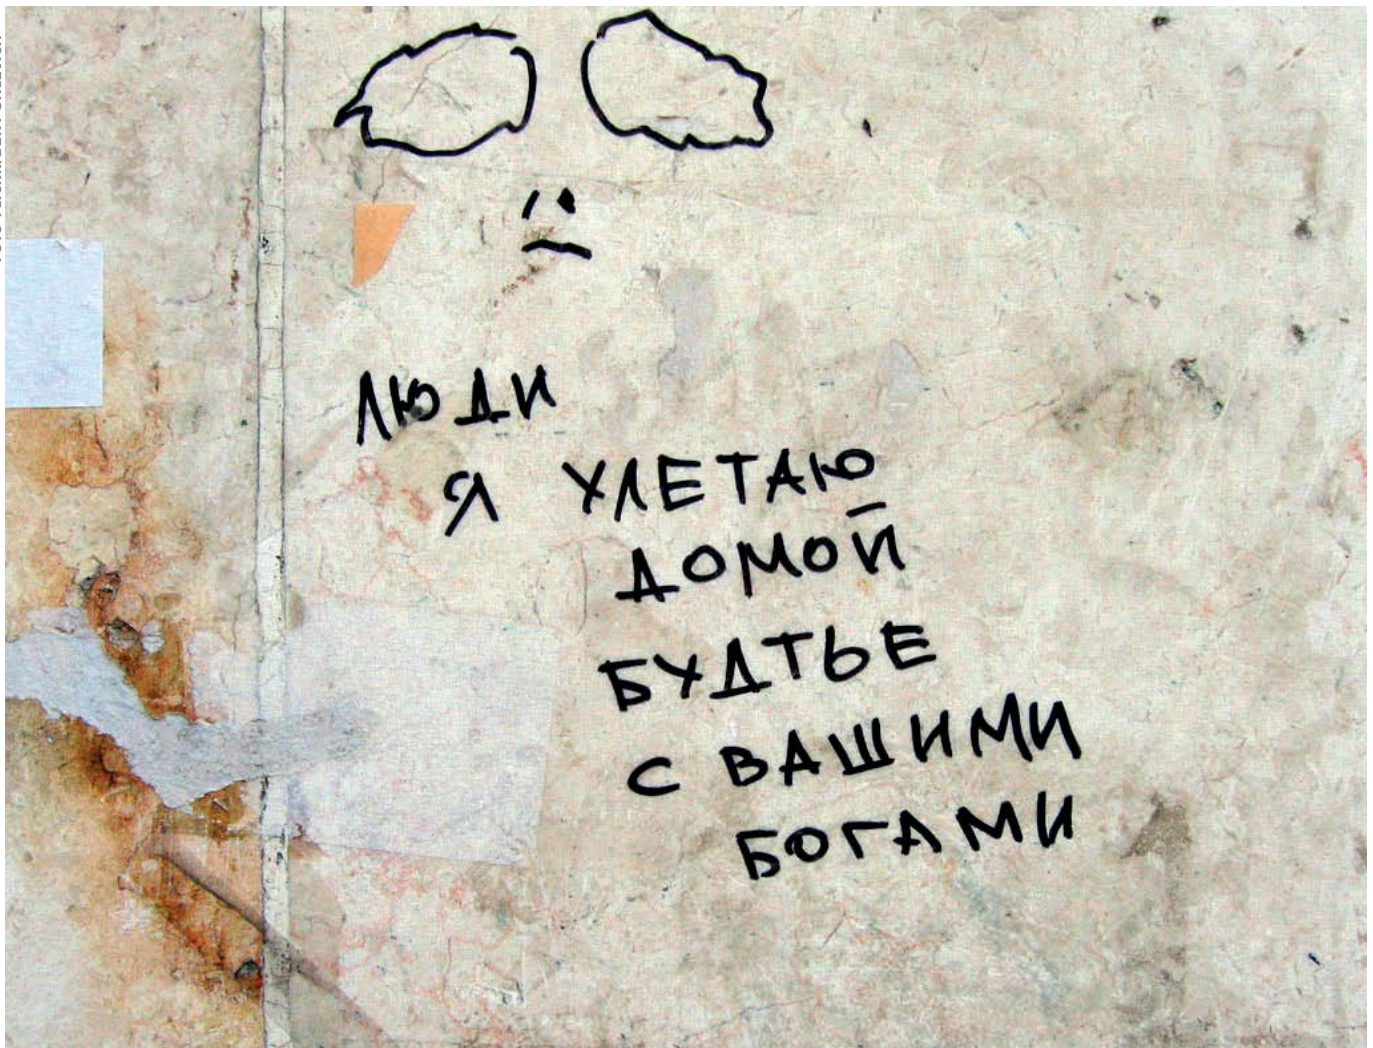 ЛЮДИ
Я УЛЕТАЮ
ДОМОЙ
БУДТЬЕ
С ВАШИМИ
БОГАМИ